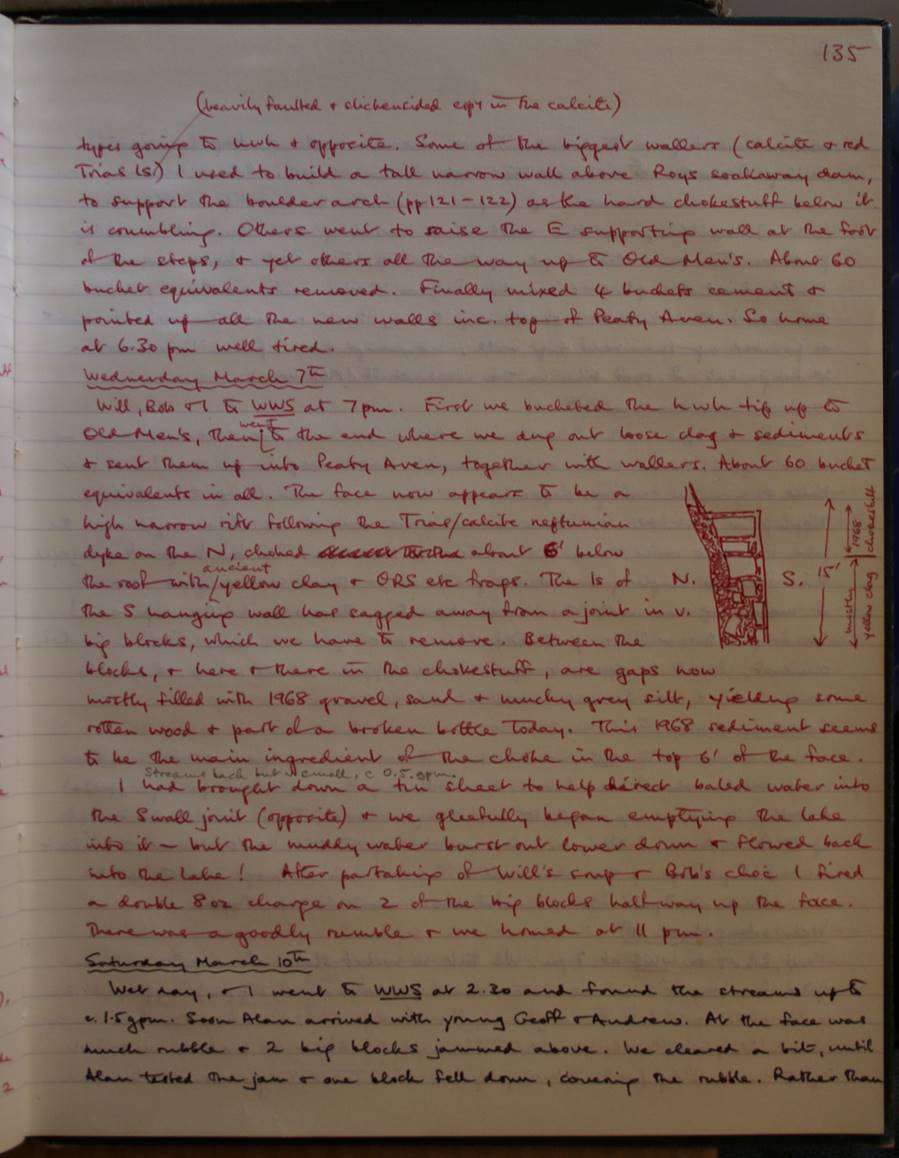 135
(heavily faulted + slickencided espy in the calcite)
types going to hwh + opposite. Some of the biggest wallers (calcite + red
Trias ls) I used to build a tall narrow wall above Roys soakaway dam,
to support the boulder arch (pp 121-122) as the hard chokestuff below it
is crumbling. Others went to raise the E supporting wall at the foot
of the steps, + yet others all the way up to Old Men's. About 60
bucket equivalents removed. Finally mixed 4 buckets cement +
pointed up all the new walls inc. top of Peaty Aven. So home
at 6.30 pm well tired.
Wednesday March 7th
Will, Bob + I to WWS at 7pm. First we bucketed the hwh tip up to
Old Men's, then went to the end where we dug out loose clag + sediments
+ sent them up into Peaty Aven, together with wallers. About 60 bucket
equivalents in all. The face now appears to be a
high narrow rift following the Trias/calcite neptunian
dyke on the N, choked about 6' below
the roof with ancient yellow clay + ORS etc frags. The ls of
the S hanging wall has sagged away from a joint in v.
big blocks, which we have to remove. Between the
blocks, + here + there in the chokestuff, are gaps now
mostly filled with 1968 gravel, sand + mucky grey silt, yielding some
rotten wood + part of a broken bottle today. This 1968 sediment seems
to be the main ingredient of the choke in the top 6' of the face.
N.
S.
15'
1968 chokestuff
mostly yellow clag
Streams back but small, c 0.5 gpm.
I had brought down a tin sheet to help direct baled water into
the Swall joint (opposite) + we gleefully began emptying the lake
into it - but the muddy water burst out lower down + flowed back
into the lake! After partaking of Will's soup + Bob's choc I fired
a double 8 oz charge on 2 of the big blocks halfway up the face.
There was a goodly rumble + we homed at 11 pm.
Saturday March 10th
Wet day, + I went to WWS at 2.30 and found the streams up to
c. 1.5 gpm. Soon Alan arrived with young Geoff + Andrew. At the face was
much rubble + 2 big blocks jammed above. We cleared a bit, until
Alan tested the jam + one block fell down, covering the rubble. Rather than